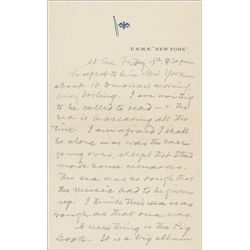 U.S.M.S. "NEW YORK"
At Sea, Friday 15th 9:30 pm
We expect to be in New York
about 10 tomorrow morning,
my darling. I am wanting
to be called to read — & the
sea is increasing all the
time. I am afraid I shall
be alone — as was the case
going over, except that
made some
The sea was so rough that
the music had to be given
up. I think this sea is as
rough as that one was.
A new thing is the Pig
Book. It is a big album